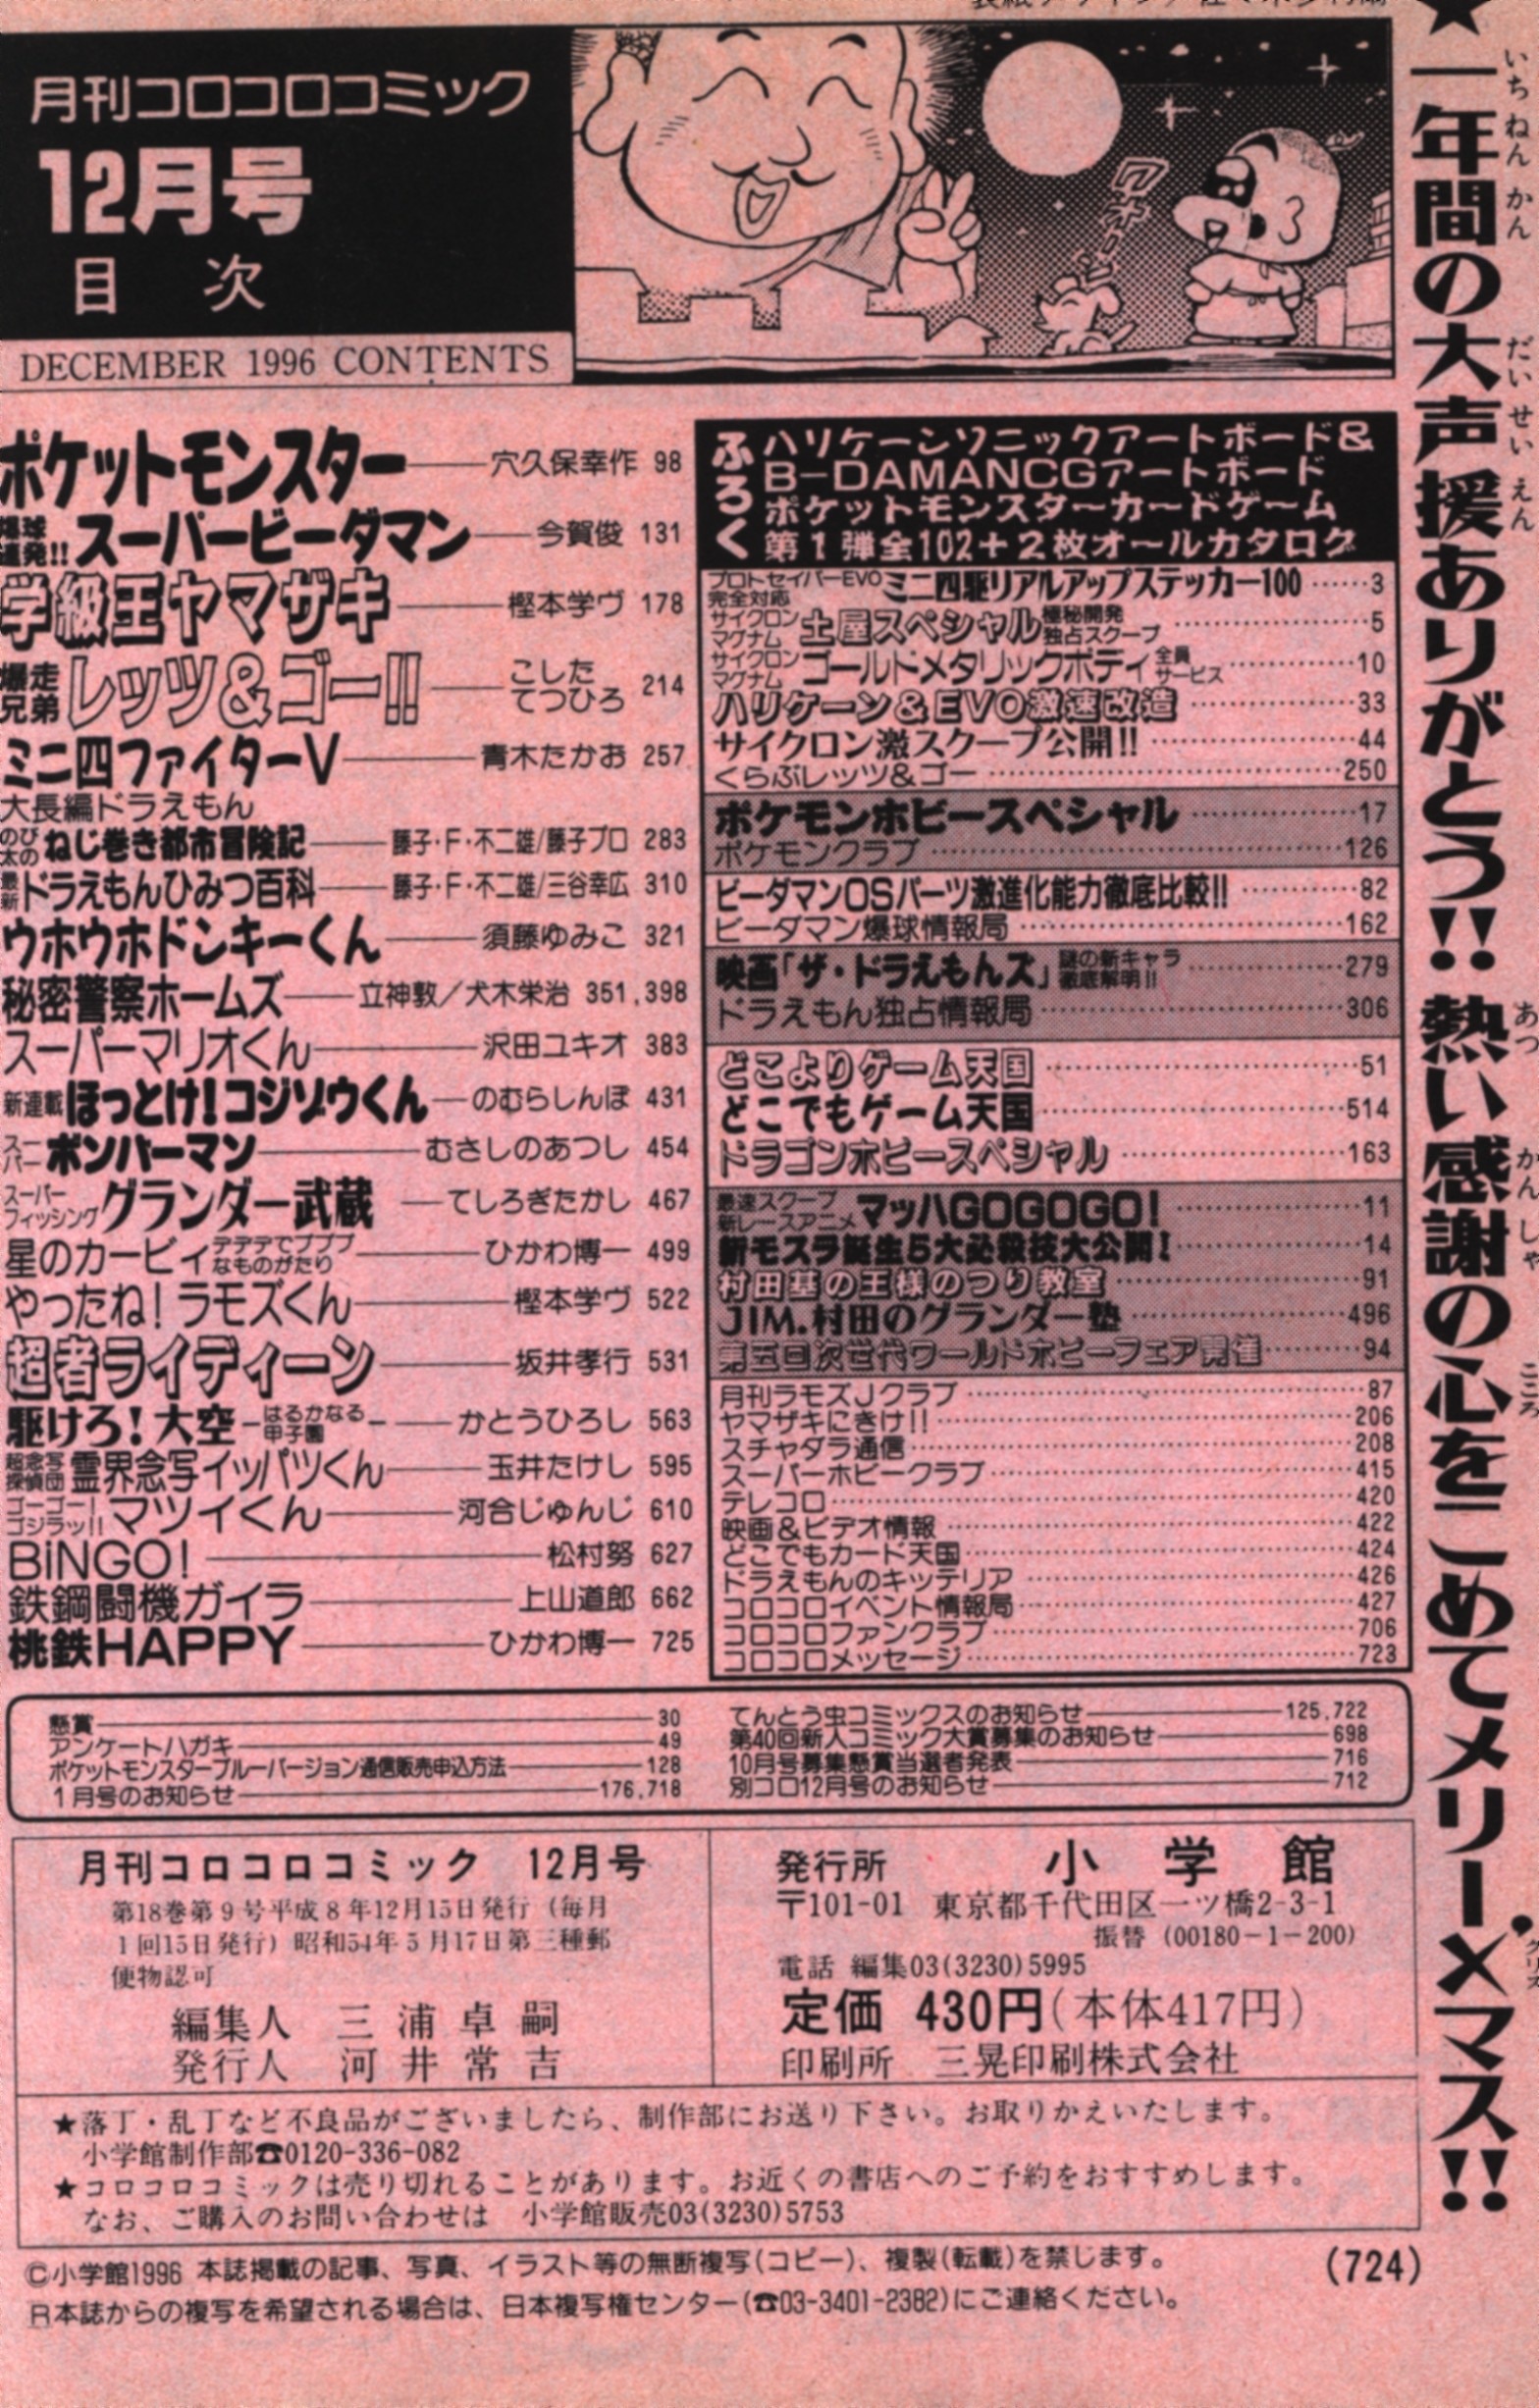 月刊コロコロコミック
12月号
目次
DECEMBER 1996 CONTENTS
ワオーン
ポケットモンスター 穴久保幸作 98
爆球連発!! スーパービーダマン 今賀俊 131
学級王ヤマザキ 樫本学ヴ 178
爆走兄弟 レッツ&ゴー!! こしたてつひろ 214
ミニ四ファイターV 青木たかお 257
大長編ドラえもん
のび太の ねじ巻き都市冒険記 藤子・F・不二雄/藤子プロ 283
最新 ドラえもんひみつ百科 藤子・F・不二雄/三谷幸広 310
ウホウホドンキーくん 須藤ゆみこ 321
秘密警察ホームズ 立神敦/犬木栄治 351,398
スーパーマリオくん 沢田ユキオ 383
新連載 ほっとけ!コジゾウくん のむらしんぼ 431
スーパー ボンバーマン むさしのあつし 454
スーパーフィッシング グランダー武蔵 てしろぎたかし 467
星のカービィ デデデでプププなものがたり ひかわ博一 499
やったね!ラモズくん 樫本学ヴ 522
超者ライディーン 坂井孝行 531
駆けろ!大空 -はるかなる甲子園- かとうひろし 563
超念写探偵団 霊界念写イッパツくん 玉井たけし 595
ゴーゴー!ゴジラッ!! マツイくん 河合じゅんじ 610
BiNGO! 松村努 627
鉄鋼闘機ガイラ 上山道郎 662
桃鉄HAPPY ひかわ博一 725
ふろく
ハリケーンソニックアートボード&
B-DAMANCGアートボード
ポケットモンスターカードゲーム
第1弾全102+2枚オールカタログ
プロトセイバーEVO完全対応 ミニ四駆リアルアップステッカー100 3
サイクロンマグナム 土屋スペシャル 極秘開発独占スクープ 5
サイクロンマグナム ゴールドメタリックボディ 全員サービス 10
ハリケーン&EVO激速改造 33
サイクロン激スクープ公開!! 44
くらぶレッツ&ゴー 250
ポケモンホビースペシャル 17
ポケモンクラブ 126
ビーダマンOSパーツ激進化能力徹底比較!! 82
ビーダマン爆球情報局 162
映画「ザ・ドラえもんズ」謎の新キャラ徹底解明!! 279
ドラえもん独占情報局 306
どこよりゲーム天国 51
どこでもゲーム天国 514
ドラゴンホビースペシャル 163
最速スクープ新レースアニメ マッハGOGOGO! 11
新モスラ誕生5大必殺技大公開! 14
村田基の王様のつり教室 91
JIM.村田のグランダー塾 496
第五回次世代ワールドホビーフェア開催 94
月刊ラモズJクラブ 87
ヤマザキにきけ!! 206
スチャダラ通信 208
スーパーホビークラブ 415
テレコロ 420
映画&ビデオ情報 422
どこでもカード天国 424
ドラえもんのキッテリア 426
コロコロイベント情報局 427
コロコロファンクラブ 706
コロコロメッセージ 723
懸賞 30
アンケートハガキ 49
ポケットモンスターブルーバージョン通信販売申込方法 128
1月号のお知らせ 176,718
てんとう虫コミックスのお知らせ 125,722
第40回新人コミック大賞募集のお知らせ 698
10月号募集懸賞当選者発表 716
別コロ12月号のお知らせ 712
月刊コロコロコミック 12月号
第18巻第9号平成8年12月15日発行(毎月
1回15日発行)昭和54年5月17日第三種郵
便物認可
編集人 三浦卓嗣
発行人 河井常吉
発行所 小学館
〒101-01 東京都千代田区一ツ橋2-3-1
振替(00180-1-200)
電話 編集03(3230)5995
定価 430円(本体417円)
印刷所 三晃印刷株式会社
★落丁・乱丁など不良品がございましたら、制作部にお送り下さい。お取りかえいたします。
小学館制作部☎0120-336-082
★コロコロコミックは売り切れることがあります。お近くの書店へのご予約をおすすめします。
なお、ご購入のお問い合わせは 小学館販売03(3230)5753
©小学館1996 本誌掲載の記事、写真、イラスト等の無断複写(コピー)、複製(転載)を禁じます。
R本誌からの複写を希望される場合は、日本複写権センター(☎03-3401-2382)にご連絡ください。
(724)
★一年間の大声援ありがとう!!熱い感謝の心をこめてメリーX'マス!!